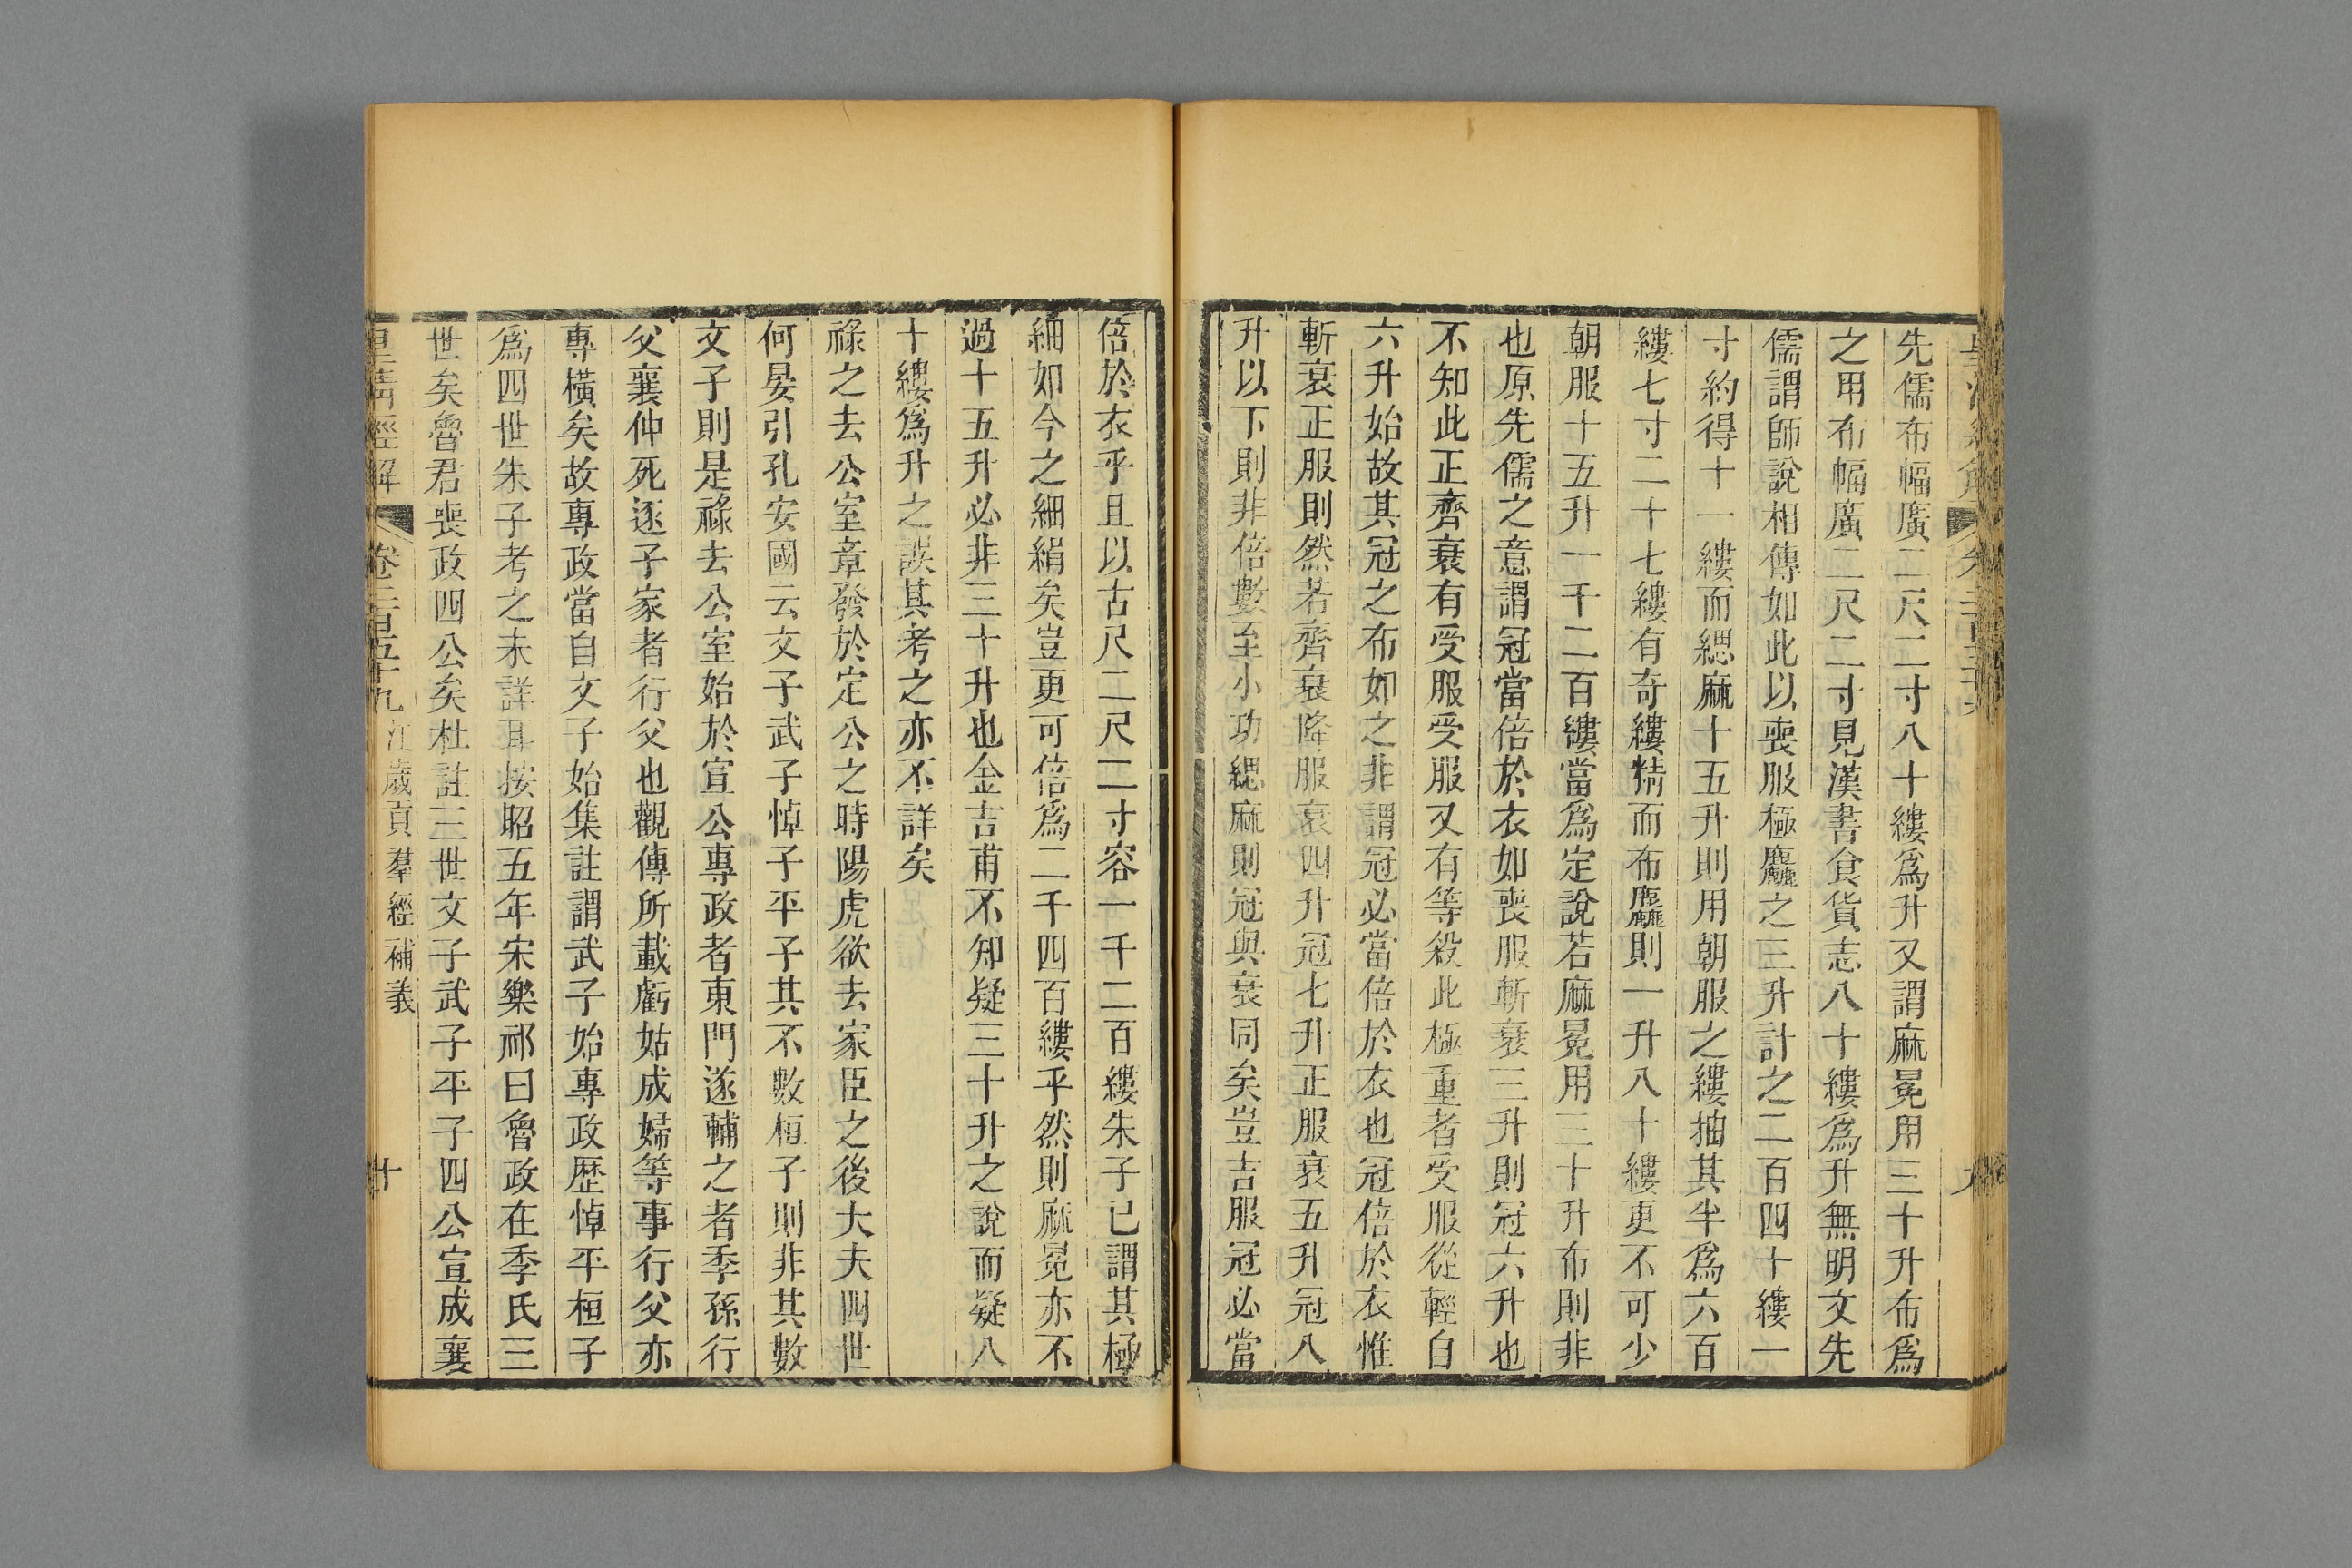 先儒布幅廣二尺二寸八十縷爲升又謂麻冕用三十升布爲
之用布幅廣二尺二寸見漢書食貨志八十縷爲升無明文先
儒謂師說相傳如此以喪服極麤之三升計之二百四十縷一
寸約得十一縷而緦麻十五升則用朝服之縷抽其半爲六百
縷七寸二十七縷有奇縷精而布麤則一升八十縷更不可少
朝服十五升一千二百縷當爲定說若麻冕用三十升布則非
也原先儒之意謂冠當倍於衣如喪服斬衰三升則冠六升也
不知此正齊衰有受服受服又有等殺此極重者受服從輕自
六升始故其冠之布如之非謂冠必當倍於衣也冠倍於衣惟
斬衰正服則然若齊衰降服衰四升冠七升正服衰五升冠八
升以下則非倍數至小功緦麻則冠與衰同矣豈吉服冠必當
倍於衣乎且以古尺二尺二寸容一千二百縷朱子已謂其極
細如今之細絹矣豈更可倍爲二千四百縷乎然則麻冕亦不
過十五升必非三十升也金吉甫不知疑三十升之說而疑八
十縷爲升之誤其考之亦不詳矣
祿之去公室章發於定公之時陽虎欲去家臣之後大夫四世
何晏引孔安國云文子武子悼子平子其不數桓子則非其數
文子則是祿去公室始於宣公專政者東門遂輔之者季孫行
父襄仲死逐子家者行父也觀傳所載虧姑成婦等事行父亦
專橫矣故專政當自文子始集註謂武子始專政歷悼平桓子
爲四世朱子考之未詳耳按昭五年宋樂祁曰魯政在季氏三
世矣魯君喪政四公矣杜註三世文子武子平子四公宣成襄
皇清經解 卷二百五十九 江歲貢羣經補義 十